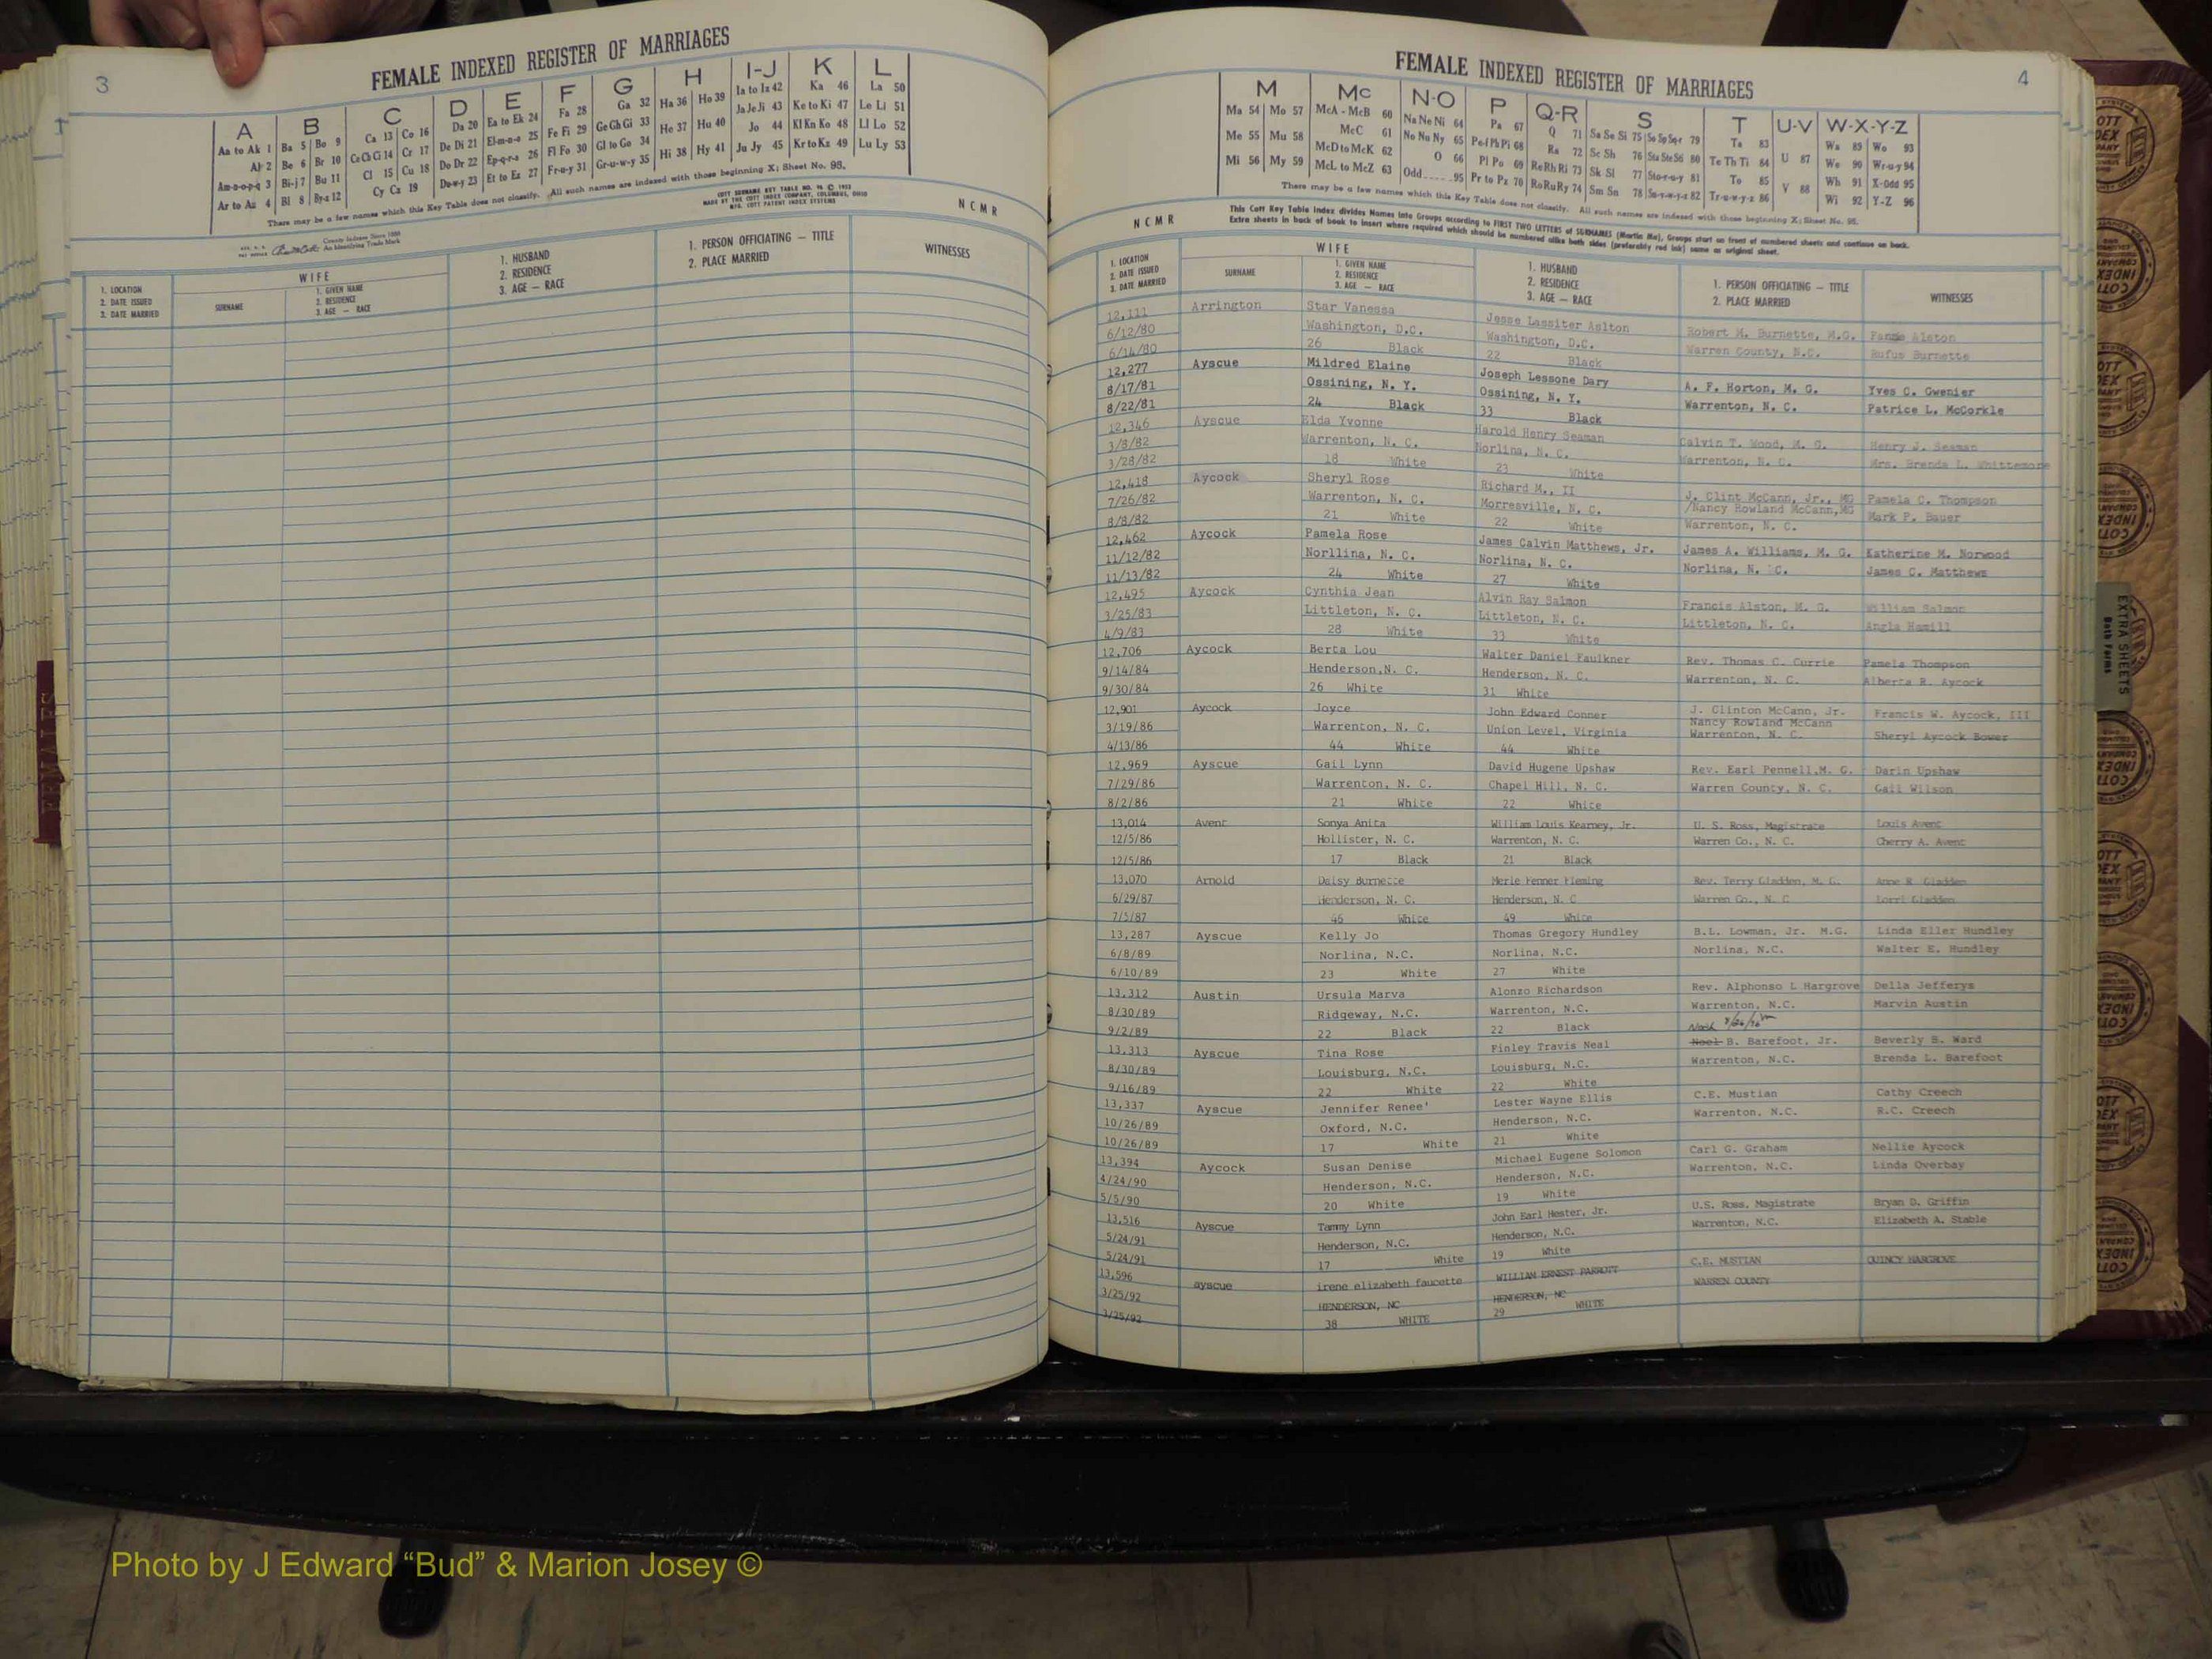 3
FEMALE INDEXED REGISTER OF MARRIAGES
A B C D E F G H I-J K L
Aa to Ak 1 Ba 5 Bo 9 Ca 13 Co 16 Da 20 Ea to Ek 24 Fa 28 Ga 32 Ha 36 Ho 39 Ia to Iz 42 Ka 46 La 50
Al 2 Be 6 Br 10 Ce Ch Ci 14 Cr 17 De Di 21 El-m-n-o 25 Fe Fi 29 Ge Gh Gi 33 He 37 Hu 40 Ja Je Ji 43 Ke to Ki 47 Le Li 51
Am-n-o-p-q 3 Bi-j 7 Bu 11 Cl 15 Cu 18 Do Dr 22 Ep-q-r-s 26 Fl Fo 30 Gl to Go 34 Hi 38 Hy 41 Jo 44 Kl Kn Ko 48 Ll Lo 52
Ar to Az 4 Bl 8 By-z 12 Cy Cz 19 Du-w-y 23 Et to Ez 27 Fr-u-y 31 Gr-u-w-y 35 Ju Jy 45 Kr to Kz 49 Lu Ly 53
There may be a few names which this Key Table does not classify. All such names are indexed with those beginning X; Sheet No. 98.
COTT SURNAME KEY TABLE NO.
MADE BY THE COTT INDEX COMPANY, COLUMBUS, OHIO
MFG. COTT PATENT INDEX SYSTEMS
N C M R
County Indexes Since 1888
An Identifying Trade Mark
1. LOCATION
2. DATE ISSUED
3. DATE MARRIED
WIFE
SURNAME
1. GIVEN NAME
2. RESIDENCE
3. AGE — RACE
1. HUSBAND
2. RESIDENCE
3. AGE — RACE
1. PERSON OFFICIATING — TITLE
2. PLACE MARRIED
WITNESSES
FEMALES
4
FEMALE INDEXED REGISTER OF MARRIAGES
M Mc N-O P Q-R S T U-V W-X-Y-Z
Ma 54 Mo 57 McA - McB 60 Na Ne Ni 64 Pa 67 Q 71 Sa Se Si 75 So Sp Sq 79 Ta 83 Wa 89 Wo 93
Me 55 Mu 58 McC 61 No Nu Ny 65 Pe Pf Ph Pi 68 Ra 72 Sc Sh 76 Sta Ste Sti 80 Te Th Ti 84 U 87 We 90 Wr-u-y 94
Mi 56 My 59 McD to McK 62 O 66 Pl Po 69 Re Rh Ri 73 Sk Sl 77 Sto-r-u-y 81 To 85 Wh 91 X-Odd 95
McL to McZ 63 Odd 95 Pr to Pz 70 Ro Ru Ry 74 Sm Sn 78 Su-v-w-y-z 82 Tr-u-w-y-z 86 V 88 Wi 92 Y-Z 96
There may be a few names which this Key Table does not classify. All such names are indexed with those beginning X; Sheet No. 98.
N C M R
This Cott Key Table Index divides Names into Groups according to FIRST TWO LETTERS of SURNAMES (Martin Ma), Groups start on front of numbered sheets and continue on back.
Extra sheets in back of book to insert where required which should be numbered alike both sides (preferably red ink) same as original sheet.
1. LOCATION
2. DATE ISSUED
3. DATE MARRIED
WIFE
SURNAME
1. GIVEN NAME
2. RESIDENCE
3. AGE — RACE
1. HUSBAND
2. RESIDENCE
3. AGE — RACE
1. PERSON OFFICIATING — TITLE
2. PLACE MARRIED
WITNESSES
12,111 Arrington Star Vanessa Jesse Lassiter Aslton Robert M. Burnette, M.G. Alston
6/12/80 Washington, D.C. Washington, D.C. Warren County, N.C. Rufus Burnette
6/14/80 26 Black 22 Black
12,277 Ayscue Mildred Elaine Joseph Lessone Dary A. F. Horton, M. G. Yves C. Gwenier
8/17/81 Ossining, N. Y. Ossining, N. Y. Warrenton, N. C. Patrice L. McCorkle
8/22/81 24 Black 33 Black
12,346 Ayscue Elda Yvonne Harold Henry Seaman Calvin T. Wood, M. G. Henry J. Seaman
3/8/82 Warrenton, N. C. Norlina, N. C. Warrenton, N. C. Mrs. Brenda L. Whittemore
3/28/82 18 White 23 White
12,418 Aycock Sheryl Rose Richard M., II J. Clint McCann, Jr., MG Pamela C. Thompson
/Nancy Rowland McCann,MG
7/26/82 Warrenton, N. C. Morresville, N. C. Warrenton, N. C. Mark P. Bauer
8/8/82 21 White 22 White
12,462 Aycock Pamela Rose James Calvin Matthews, Jr. James A. Williams, M. G. Katherine M. Norwood
11/12/82 Norllina, N. C. Norlina, N. C. Norlina, N. C. James C. Matthews
11/13/82 24 White 27 White
12,495 Aycock Cynthia Jean Alvin Ray Salmon Francis Alston, M. G. William Salmon
3/25/83 Littleton, N. C. Littleton, N. C. Littleton, N. C. Angla Hamill
4/9/83 28 White 33 White
12,706 Aycock Berta Lou Walter Daniel Faulkner Rev. Thomas C. Currie Pamela Thompson
9/14/84 Henderson,N. C. Henderson, N. C. Warrenton, N. C. Alberta R. Aycock
9/30/84 26 White 31 White
12,901 Aycock Joyce John Edward Conner J. Clinton McCann, Jr. Francis W. Aycock, III
Nancy Rowland McCann
3/19/86 Warrenton, N. C. Union Level, Virginia Warrenton, N. C. Sheryl Aycock Bower
4/13/86 44 White 44 White
12,969 Ayscue Gail Lynn David Hugene Upshaw Rev. Earl Pennell,M. G. Darin Upshaw
7/29/86 Warrenton, N. C. Chapel Hill, N. C. Warren County, N. C. Gail Wilson
8/2/86 21 White 22 White
13,014 Avent Sonya Anita William Louis Kearney, Jr. U. S. Ross, Magistrate Louis Avent
12/5/86 Hollister, N. C. Warrenton, N. C. Warren Co., N. C. Cherry A. Avent
12/5/86 17 Black 21 Black
13,070 Arnold Daisy Burnette Merle Fenner Fleming Rev. Terry Gladden, M. G. Anne R. Gladden
6/29/87 Henderson, N. C. Henderson, N. C Warren Co., N. C Lorri Gladden
7/5/87 46 White 49 White
13,287 Ayscue Kelly Jo Thomas Gregory Hundley B.L. Lowman, Jr. M.G. Linda Eller Hundley
6/8/89 Norlina, N.C. Norlina, N.C. Norlina, N.C. Walter E. Hundley
6/10/89 23 White 27 White
13,312 Austin Ursula Marva Alonzo Richardson Rev. Alphonso L Hargrove Della Jefferys
8/30/89 Ridgeway, N.C. Warrenton, N.C. Warrenton, N.C. Marvin Austin
9/2/89 22 Black 22 Black
13,313 Ayscue Tina Rose Finley Travis Neal Noel B. Barefoot, Jr. Beverly B. Ward
8/30/89 Louisburg, N.C. Louisburg, N.C. Warrenton, N.C. Brenda L. Barefoot
9/16/89 22 White 22 White
13,337 Ayscue Jennifer Renee' Lester Wayne Ellis C.E. Mustian Cathy Creech
10/26/89 Oxford, N.C. Henderson, N.C. Warrenton, N.C. R.C. Creech
10/26/89 17 White 21 White
13,394 Aycock Susan Denise Michael Eugene Solomon Carl G. Graham Nellie Aycock
4/24/90 Henderson, N.C. Henderson, N.C. Warrenton, N.C. Linda Overbay
5/5/90 20 White 19 White
13,516 Ayscue Tammy Lynn John Earl Hester, Jr. U.S. Ross, Magistrate Bryan D. Griffin
5/24/91 Henderson, N.C. Henderson, N.C. Warrenton, N.C. Elizabeth A. Stable
5/24/91 17 White 19 White
13,596 ayscue irene elizabeth faucette WILLIAM ERNEST PARROTT C.E. MUSTIAN QUINCY HARGROVE
3/25/92 HENDERSON, NC HENDERSON, NC WARREN COUNTY
3/25/92 38 WHITE 29 WHITE
EXTRA SHEETS
Both Forms
Photo by J Edward “Bud” & Marion Josey ©